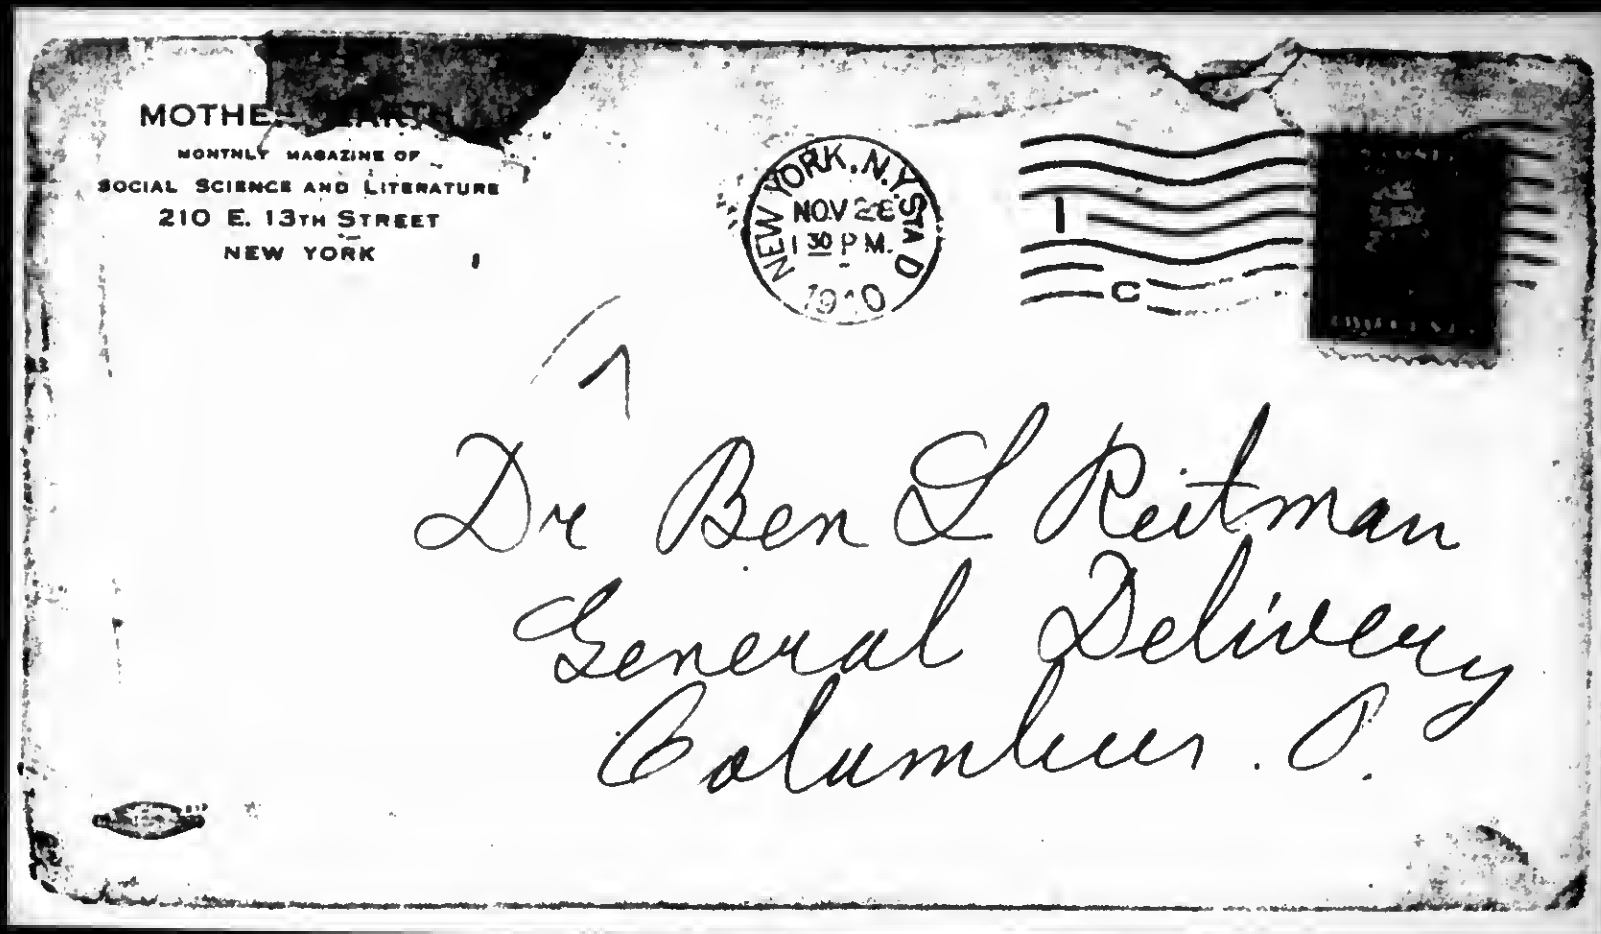 MOTHE
MONTHLY MAGAZINE OF
SOCIAL SCIENCE AND LITERATURE
210 E. 13TH STREET
NEW YORK
NEW YORK, N.Y. STA D
NOV 28
1 30 P M.
1910
1
C
7
Dr Ben L Reitman
General Delivery
Columbus. O.